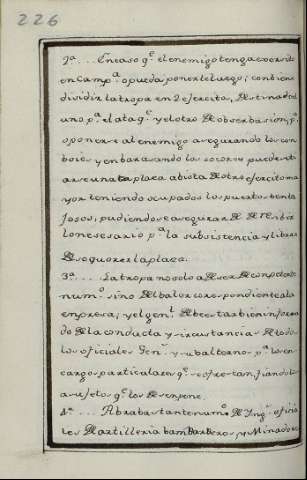 226
2ª... En caso q.e el enemigo tenga exercito
en Camp.ª o pueda ponerle luego; conviene
dividir la tropa en 2 exercitos, destinado el
uno p.ª el ataq.e y el otro de observasion, p.ª
oponerse al enemigo asegurando los con
boies y enbarasando los socoros puede siti
arse una
plaza a bista de otro exercito ma
yor teniendo ocupados los puestos benta
josos, pudiendose asegurar de resibir
lo nesesario p.ª la subsistencia y librar
de seguores la plaza.
3ª... La tropa no solo a de ser de conpetente
num.o sino de balor corespondiente a la
empresa; y el gen.l de be estar bien informa
do de la conducta y sircustancias de todos
los oficiales Gen.s y subalternos p.ª los en
cargos particulares q.e se ofrescan fiandolos
a sujetos q.e los desenpeñe.
4ª... Abra bastante num.o de Ing.s oficia
les de artilleria bambarderos, y Minadores